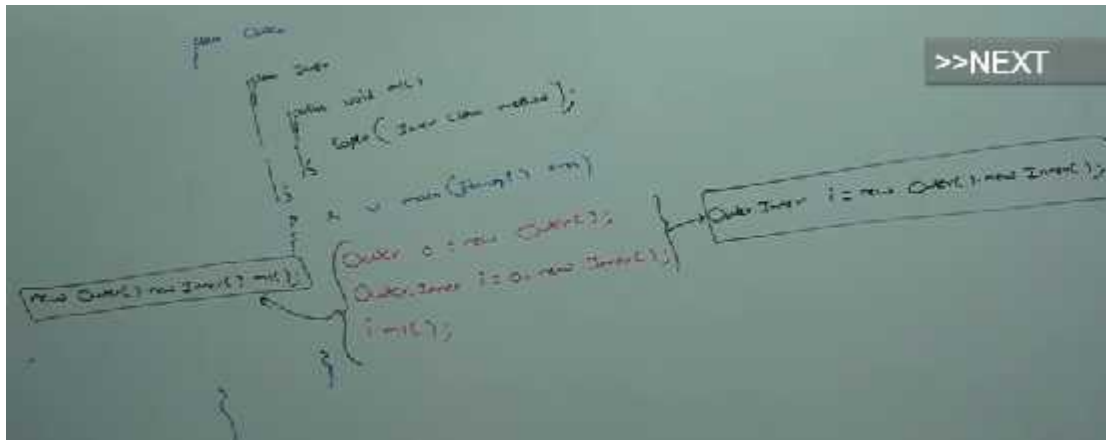 class Outer
>>NEXT
class Inner
public void m1()
Sopln(Inner class method);
p s v main(String[] args)
Outer o = new Outer();
Outer.Inner i = o.new Inner();
i.m1();
Outer.Inner i = new Outer().new Inner();
new Outer().new Inner().m1();